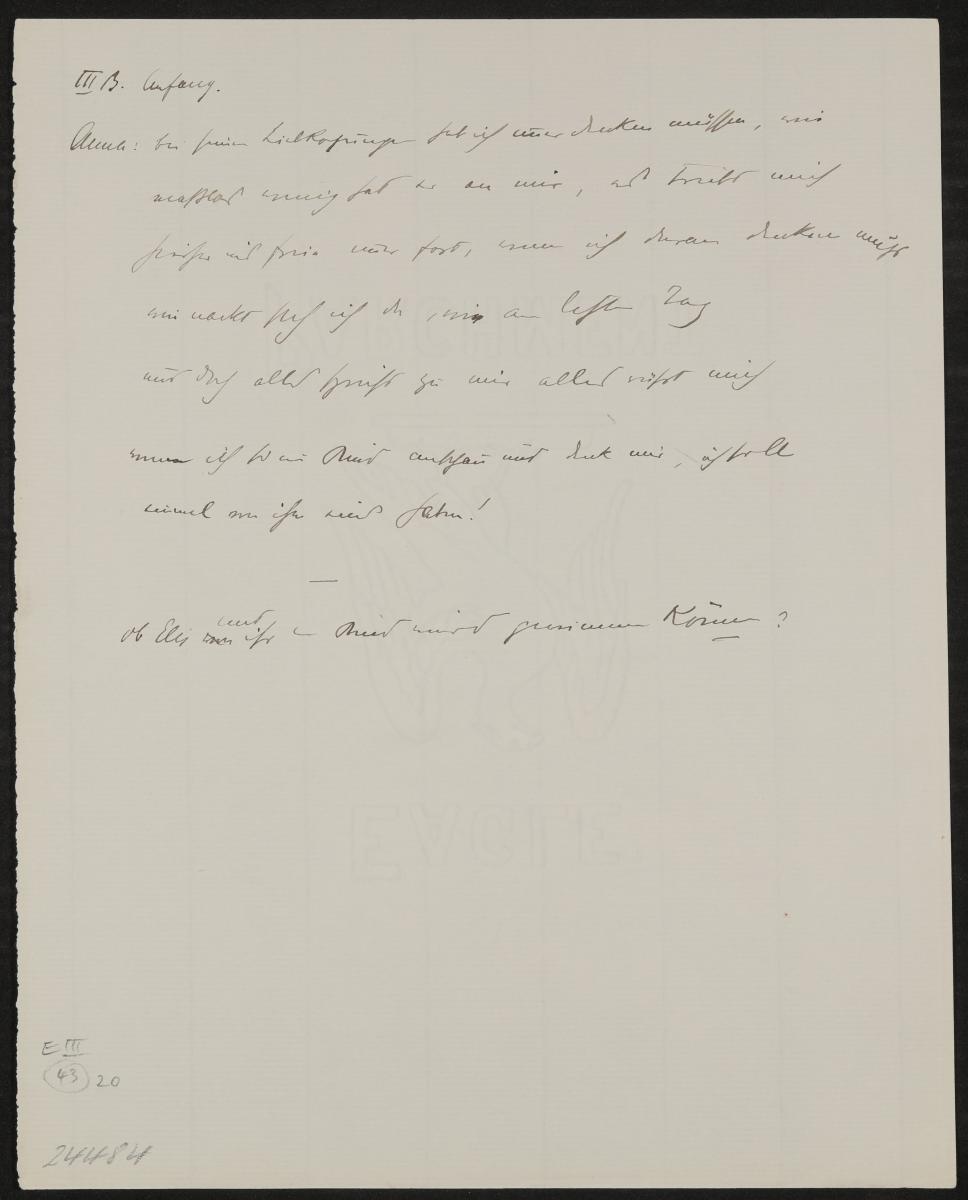 III B. Anfang.
Anna: bei seinen Liebkosungen hab ich immer denken müssen, wie
maßlos wenig hat er an mir, es treibt mich
immer fort, wenn ich daran denken muß
wie nackt steh ich da, wie am letzten Tag
und doch alles spricht zu mir alles rührt mich
wenn ich so ein Kind anschau und denk mir, ich soll
einmal von ihm eines haben!
—
ob Elis und ihr ein Kind wird gewinnen können?
E III
43 20
24484
EAGLE